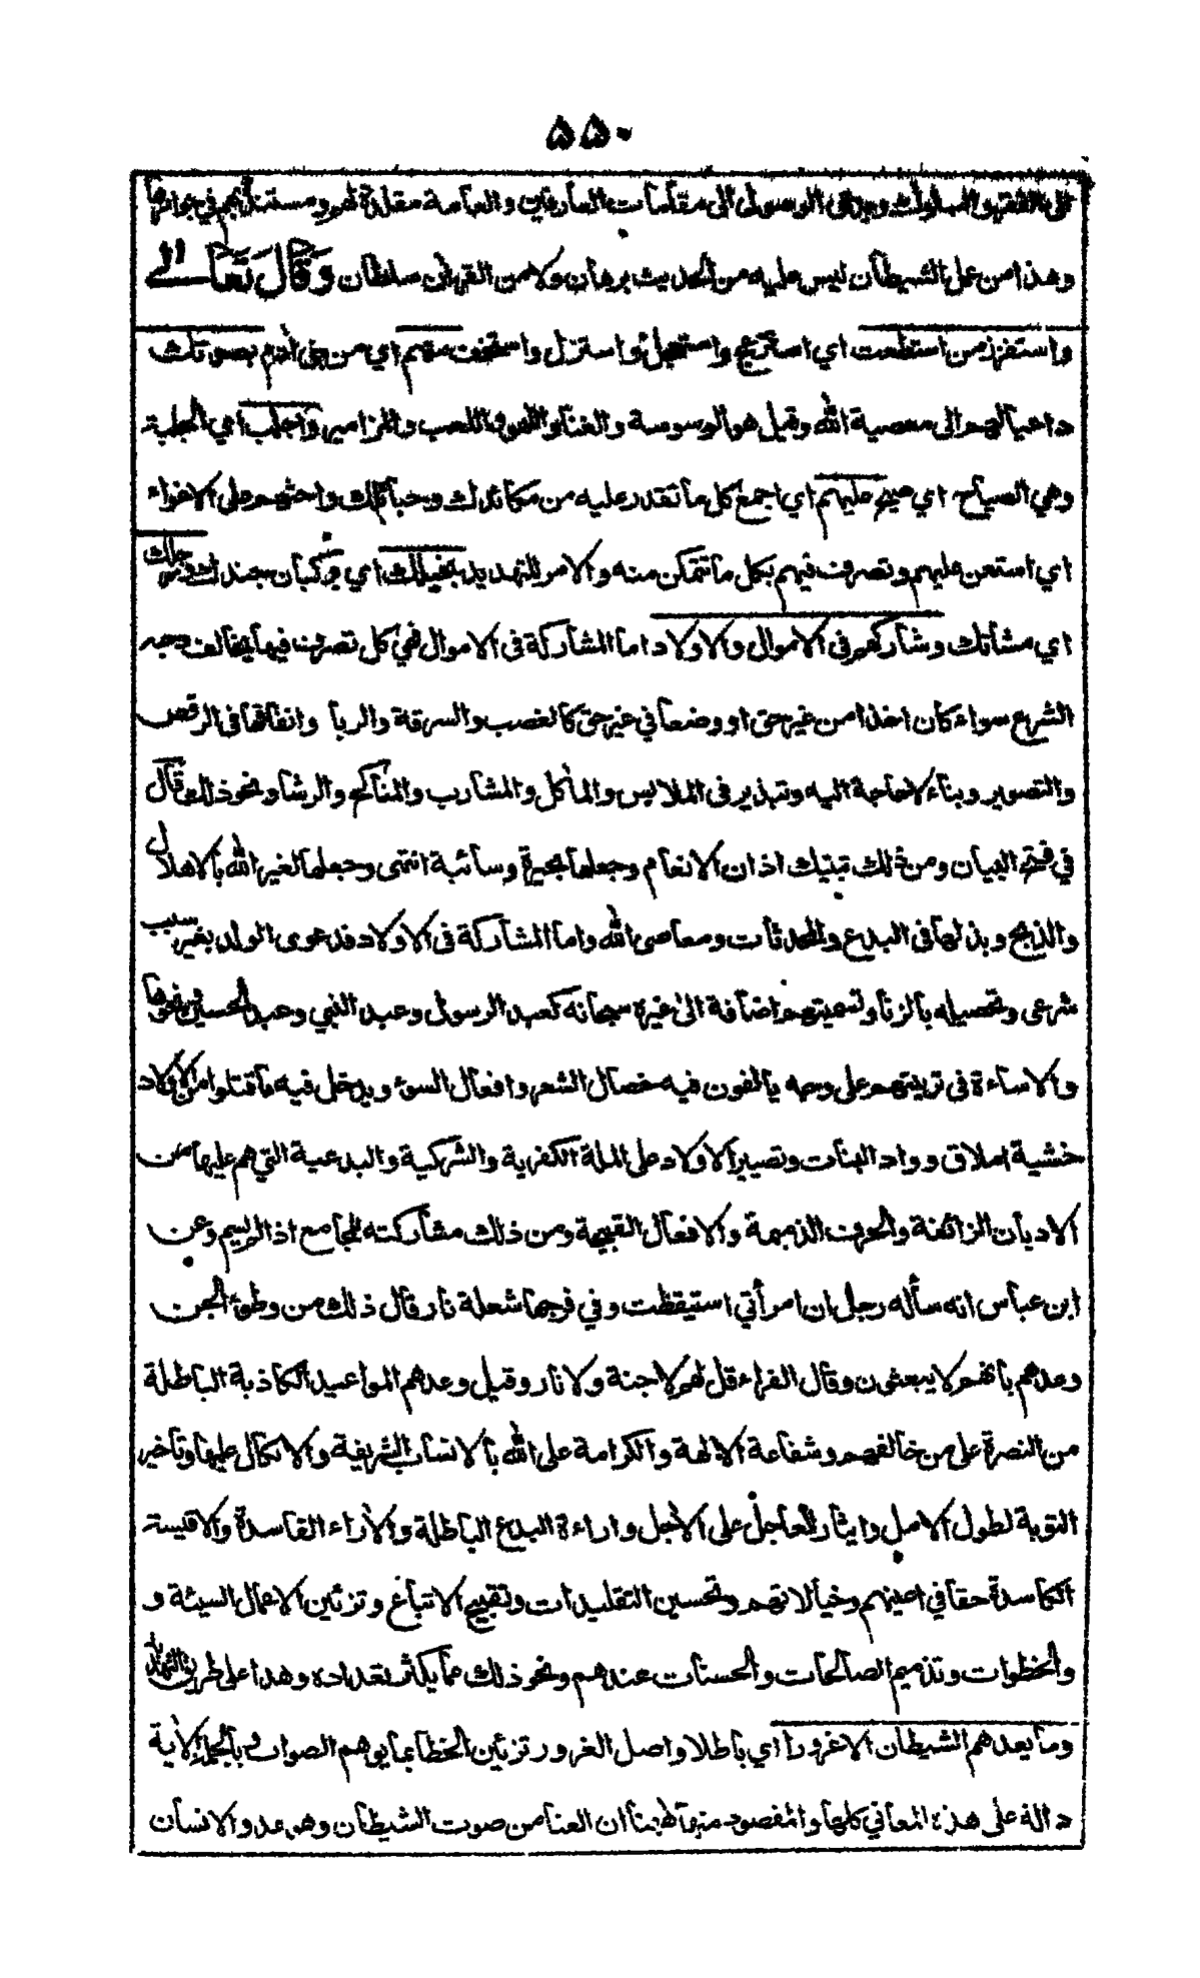 ۵۵۰
الى مقامات العارفين والعامة مقلدة لهم ومستندلهم في جوازها
وهذا من عمل الشيطان ليس عليه من الحديث برهان ولا من القرآن سلطان وَقَالَ تَعَالىٰ
واستفزز من استطعت اي استزعج واستعجل واستزل واستخف منهم اي من بني ادم بصوتك
داعيا لهم الى معصية الله وقيل هو الوسوسة والغناء واللهو واللعب والمزامير واجلب اي الجلبة
وهي الصياح اي صح عليهم اي اجمع كل ما تقدر عليه من مكائدك وحبائلك واحثهم على الاغواء
اي استعن عليهم وتصرف فيهم بكل ما تتمكن منه والامر للتهديد بخيلك اي بركبان جندك ورجلك
اي مشاتك وشاركهم في الاموال والاولاد اما المشاركة في الاموال فهي كل تصرف فيها يخالف وجه
الشرع سواء كان اخذا من غير حق او وضعا في غير حق كالغصب والسرقة والربا وانفاقها في الرقص
والتصوير وبناء لا حاجة اليه وتبذير في الملابس والمأكل والمشارب والمناكح والرشاء ونحو ذلك قال
في فتح البيان ومن ذلك تبتيك اذان الانعام وجعلها بحيرة وسائبة انتهى وجعلها لغير الله بالاهلال
والذبح وبذلها في البدع والمحدثات ومعاصى الله واما المشاركة في الاولاد فدعوى الولد بغير سبب
شرعى وتحصيله بالزنا وتسميتهم اضافة الى غيره سبحانه كعبد الرسول وعبد النبي وعبد الحسين ونحوها
والاساءة في تربيتهم على وجه يألفون فيه خصال الشر وافعال السوء ويدخل فيه ما قتلوا من الاولاد
خشية املاق وواد البنات وتصيير الاولاد على الملة الكفرية والشركية والبدعية التي هم عليها من
الاديان الزائغة والحرف الذميمة والافعال القبيحة ومن ذلك مشاركته للمجامع اذا لم يسم وعن
ابن عباس انه سأله رجل ان امرأتي استيقظت وفي فرجها شعلة نار قال ذلك من وطئ الجن
وعدهم بانهم لا يبعثون وقال الفراء قل لهم لا جنة ولا نار وقيل وعدهم المواعيد الكاذبة الباطلة
من النصرة على من خالفهم وشفاعة الالهة والكرامة على الله بالانساب الشريفة والاتكال عليها وتأخير
التوبة لطول الامل وايثار العاجل على الاجل واراءة البدع الباطلة والآراء الفاسدة والاقيسة
الكاسدة حقا في اعينهم وخيالاتهم وتحسين التقليدات وتقبيح الاتباع وتزئين الاعمال السيئة و
والخطوات وتذميم الصالحات والحسنات عندهم ونحو ذلك مما يكثر تعداده وهذا على طريق التهديد
وما يعدهم الشيطان الا غرورا اي باطلا واصل الغرور تزئين الخطأ بما يوهم الصواب وبالجملة الآية
دالة على هذه المعاني كلها والمقصود منها هٰهنا ان الغنا من صوت الشيطان وهو عدو الانسان